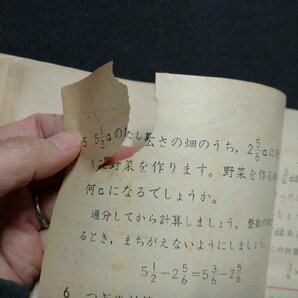 5 5 1/2 aの たし 広さの畑のうち，2 5/6 aに
野菜を作ります。野菜を作る
何aになるでしょうか。
通分してから計算しましょう。整数の
るとき，まちがえないようにしましょう。
5 1/2 − 2 5/6 = 5 3/6 − 2 5/6
6